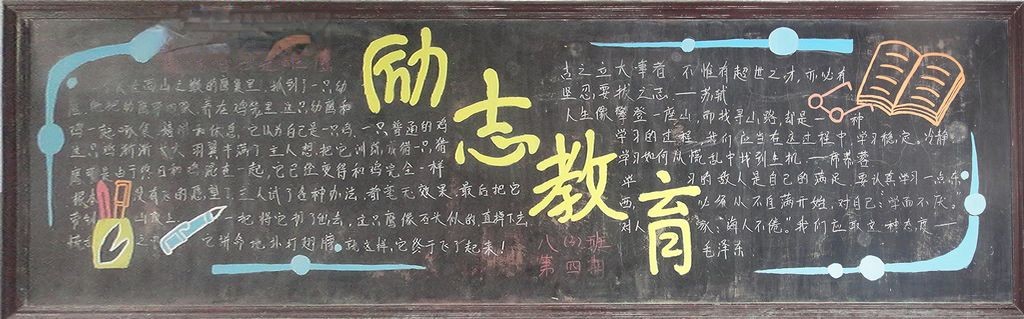 励志教育
人在高山之巅的鹰巢里,抓到了一只幼
鹰,他把幼鹰带回家,养在鸡笼里,这只幼鹰和
鸡一起啄食、嬉闹和休息,它以为自己是一只鸡,一只普通的鸡
这只鸡渐渐长大,羽翼丰满了,主人想把它训练成猎只,猎
鹰可是由于终日和鸡混在一起,它已经变得和鸡完全一样
根本没有飞的愿望了,主人试了各种办法,都毫无效果,最后把它
带到山顶上,一把将它扔了出去,这只鹰像石头似的直掉下去
之中它拼命地扑打翅膀,就这样,它终于飞了起来!
八(2)班
第四期
古之立大事者 不惟有超世之才,亦必有
坚忍不拔之志 —苏轼
人生像攀登一座山,而找寻山路,却是一种
学习的过程,我们应当在这过程中,学习稳定、冷静
学习如何从慌乱中找到生机 —席慕蓉
学习的敌人是自己的满足,要认真学习一点东
西,必须从不自满开始,对自己:学而不厌。
对人家:诲人不倦。我们应取这种态度—
毛泽东